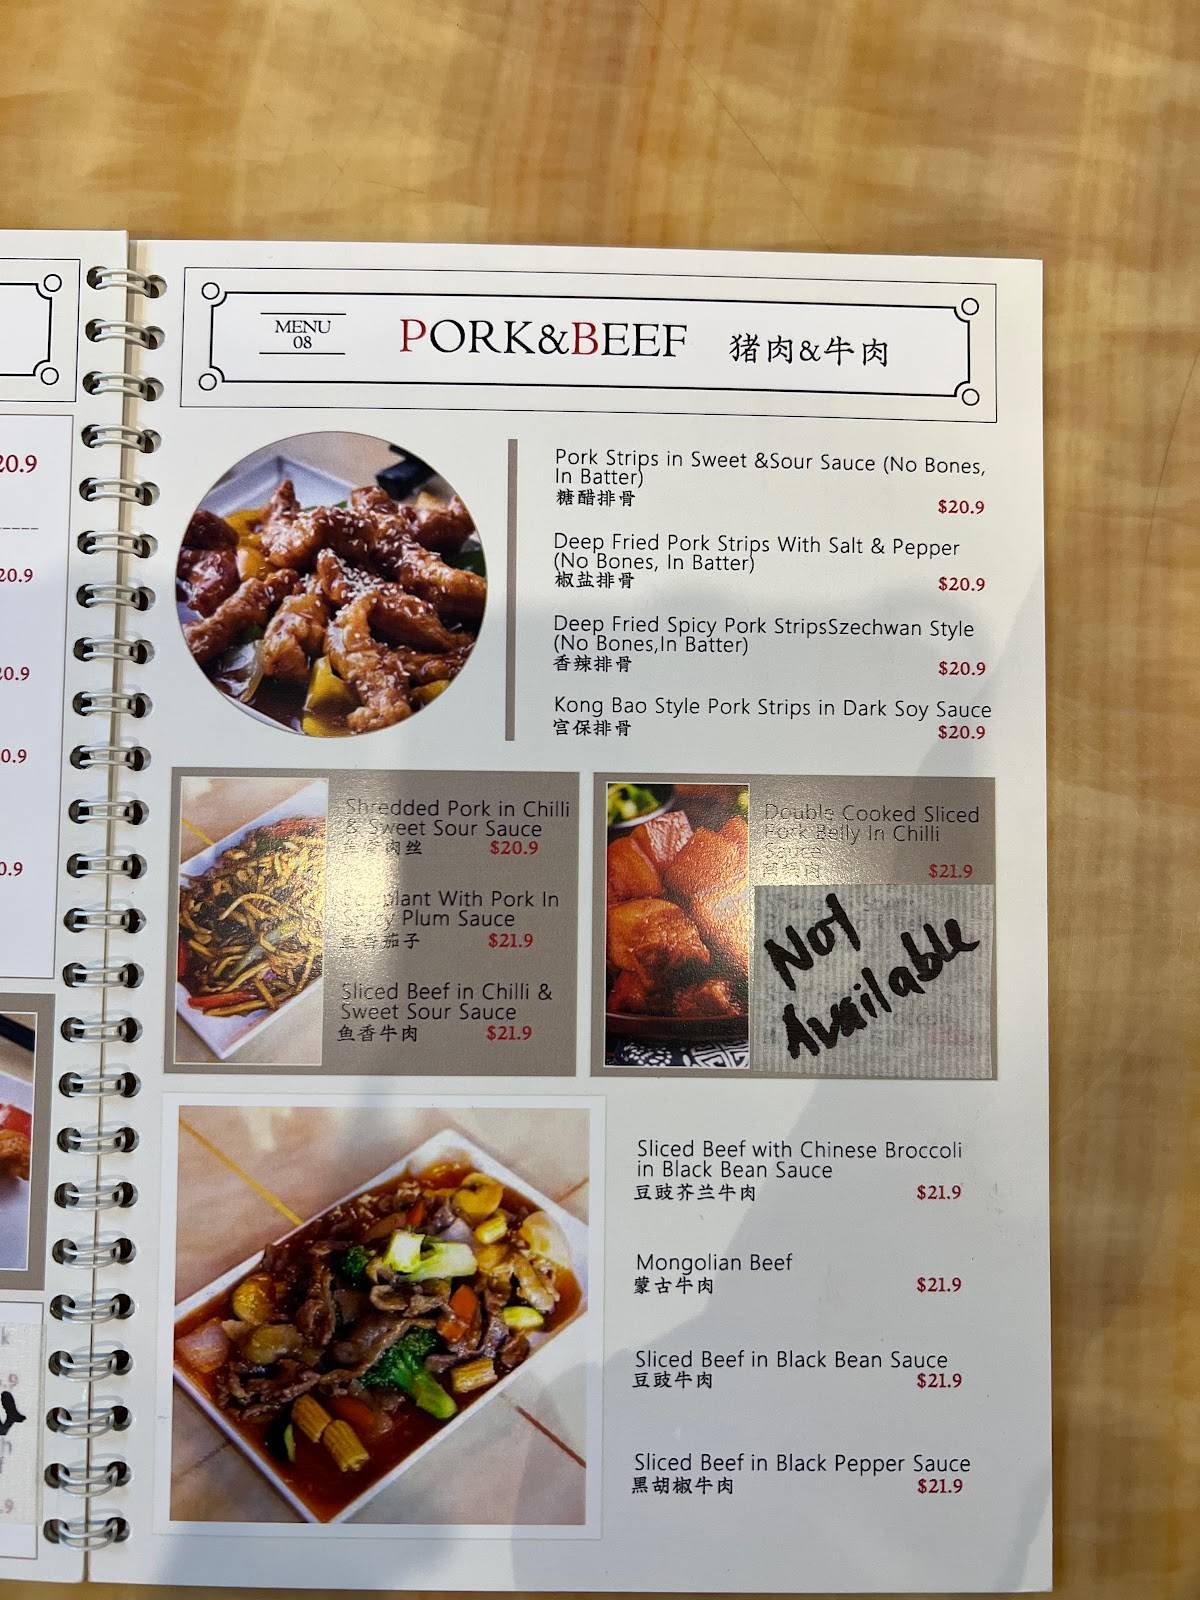 20.9
20.9
20.9
0.9
0.9
k
.9
h
f
.9
MENU
08
PORK&BEEF 猪肉&牛肉
Pork Strips in Sweet &Sour Sauce (No Bones,
In Batter)
糖醋排骨 $20.9
Deep Fried Pork Strips With Salt & Pepper
(No Bones, In Batter)
椒盐排骨 $20.9
Deep Fried Spicy Pork StripsSzechwan Style
(No Bones,In Batter)
香辣排骨 $20.9
Kong Bao Style Pork Strips in Dark Soy Sauce
宫保排骨 $20.9
Shredded Pork in Chilli
& Sweet Sour Sauce
鱼香肉丝 $20.9
Eggplant With Pork In
Spicy Plum Sauce
鱼香茄子 $21.9
Sliced Beef in Chilli &
Sweet Sour Sauce
鱼香牛肉 $21.9
Double Cooked Sliced
Pork Belly In Chilli
Sauce
$21.9
Not
Available
Sliced Beef with Chinese Broccoli
in Black Bean Sauce
豆豉芥兰牛肉 $21.9
Mongolian Beef
蒙古牛肉 $21.9
Sliced Beef in Black Bean Sauce
豆豉牛肉 $21.9
Sliced Beef in Black Pepper Sauce
黑胡椒牛肉 $21.9